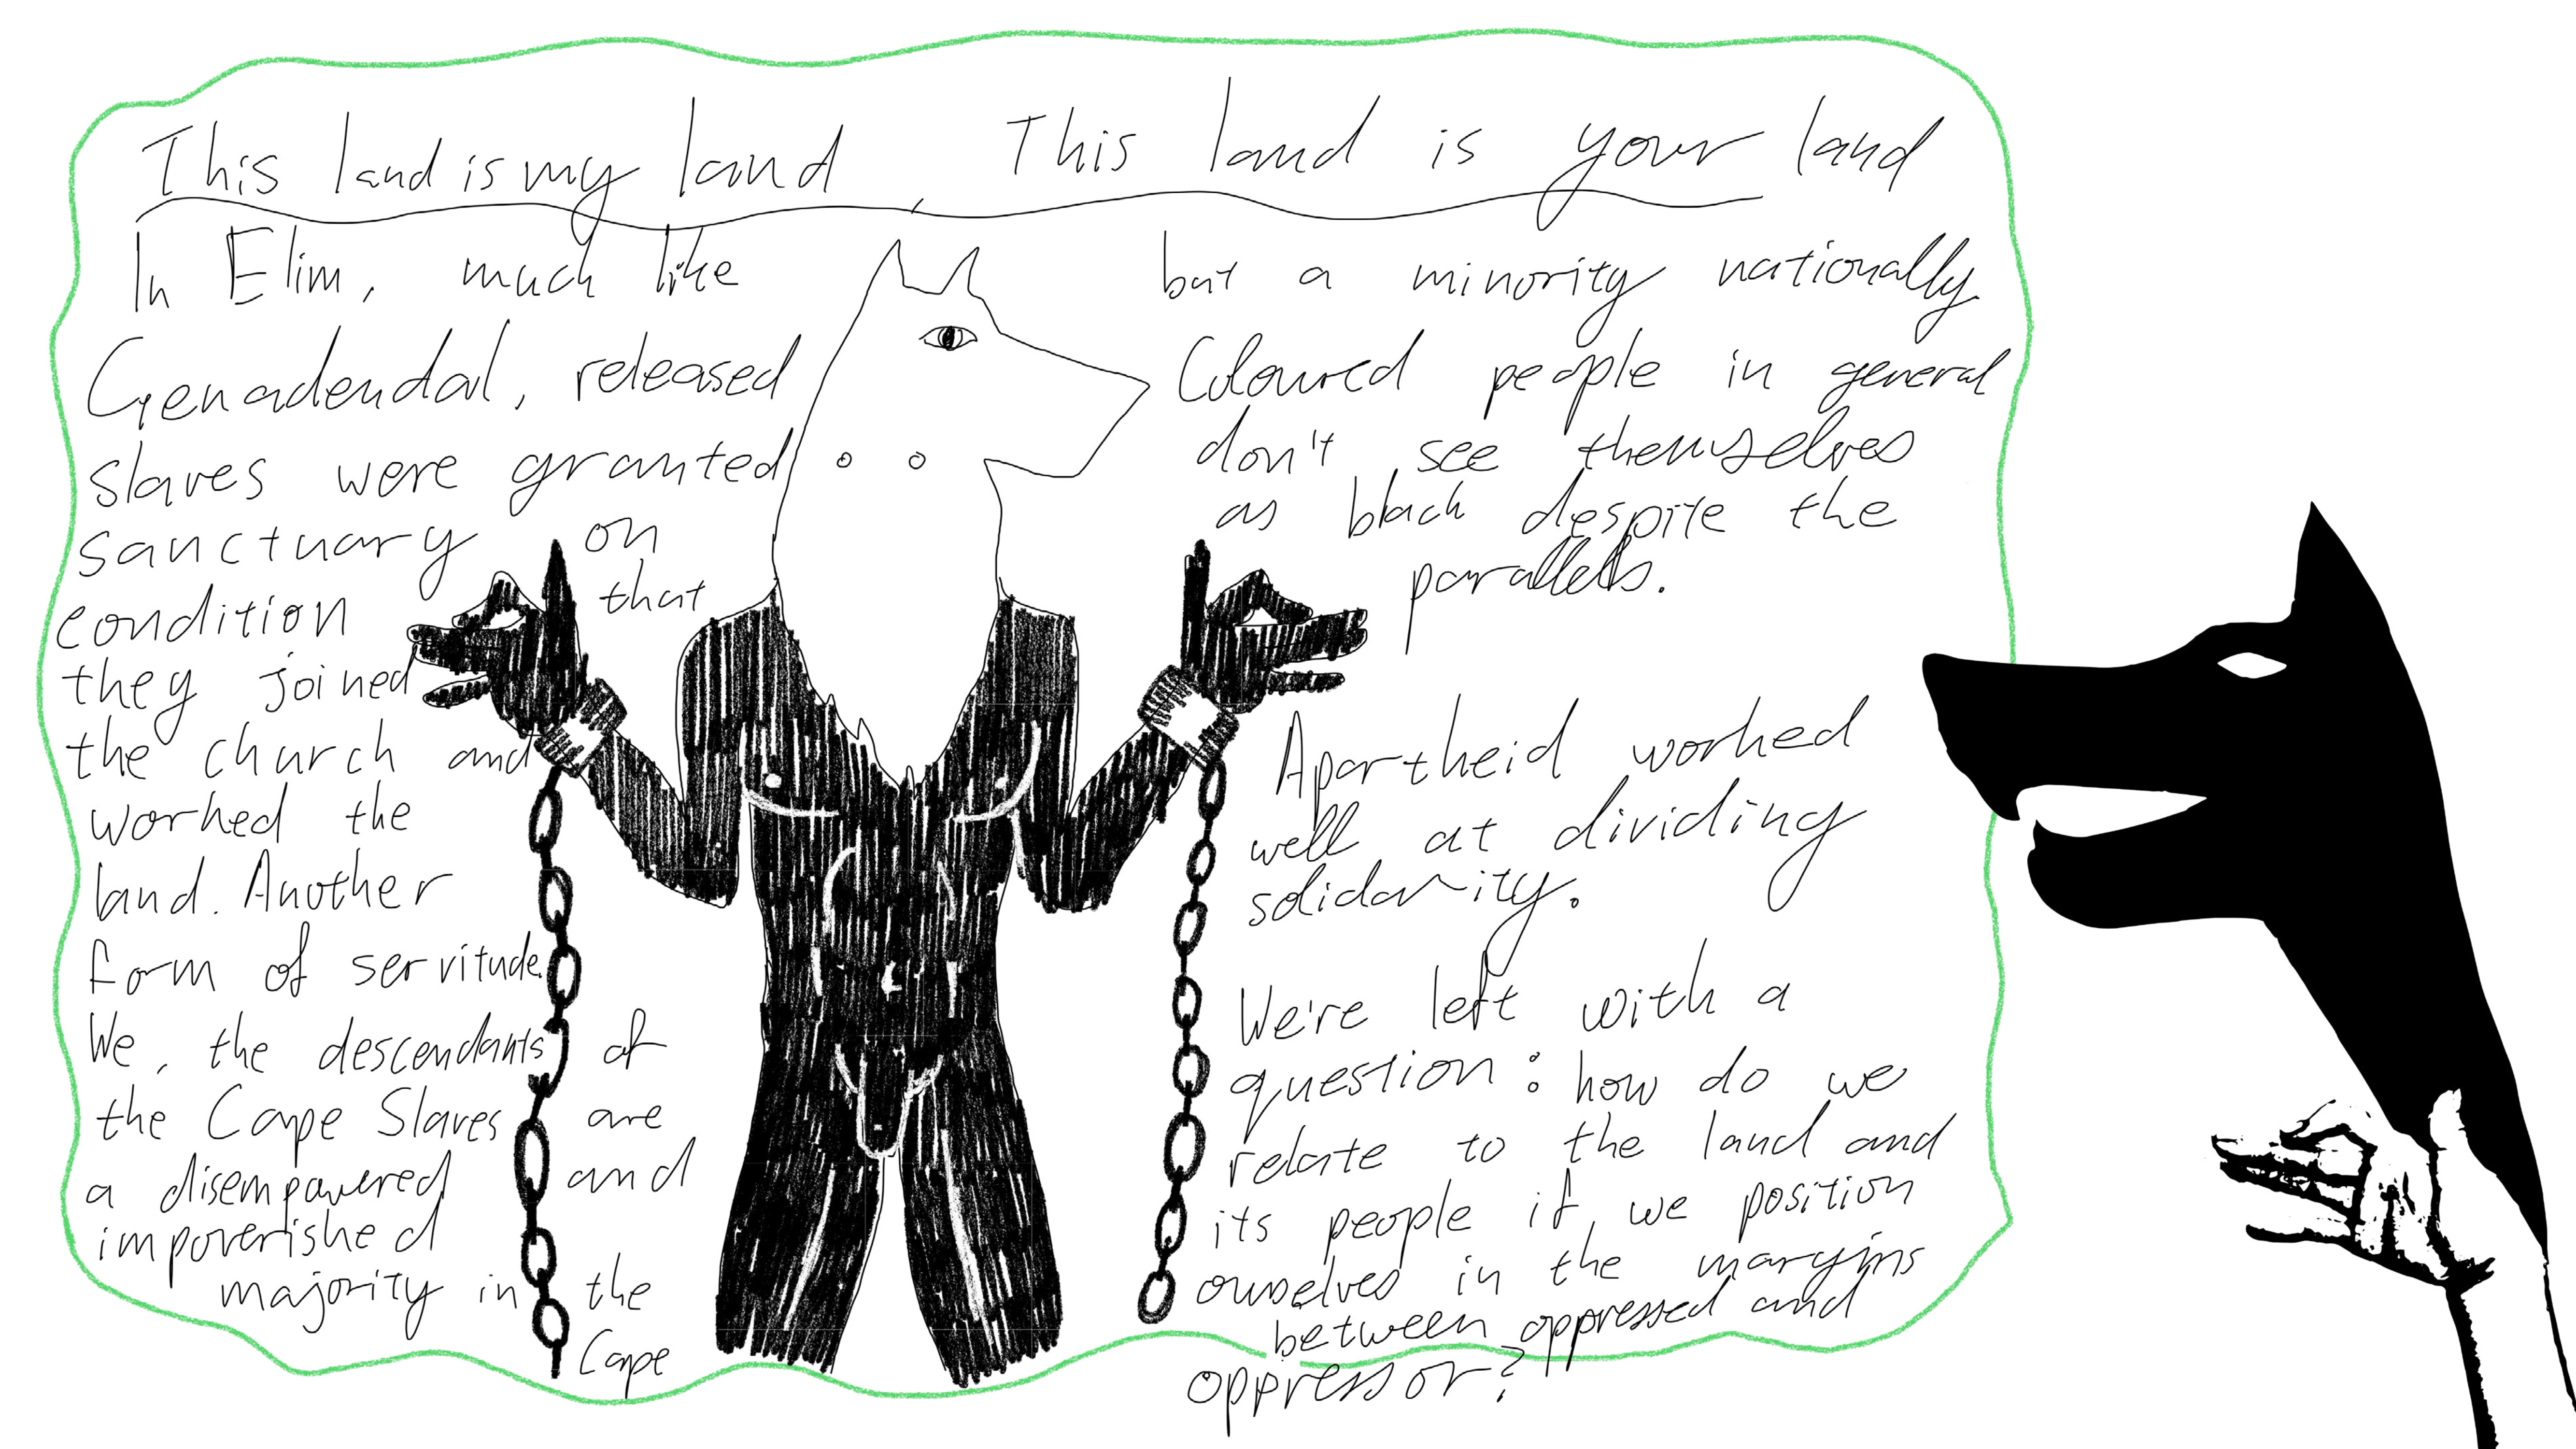 This land is my land, This land is your land
In Elim, much like
Genadendal, released
slaves were granted
sanctuary on
condition that
they joined
the church and
worked the
land. Another
form of servitude.
We, the descendants of
the Cape Slaves are
a disempowered and
impoverished
majority in the
Cape
but a minority nationally.
Coloured people in general
don't see themselves
as black despite the
parallels.
Apartheid worked
well at dividing
solidarity.
We're left with a
question: how do we
relate to the land and
its people if, we position
ourselves in the margins
between oppressed and
oppressor?